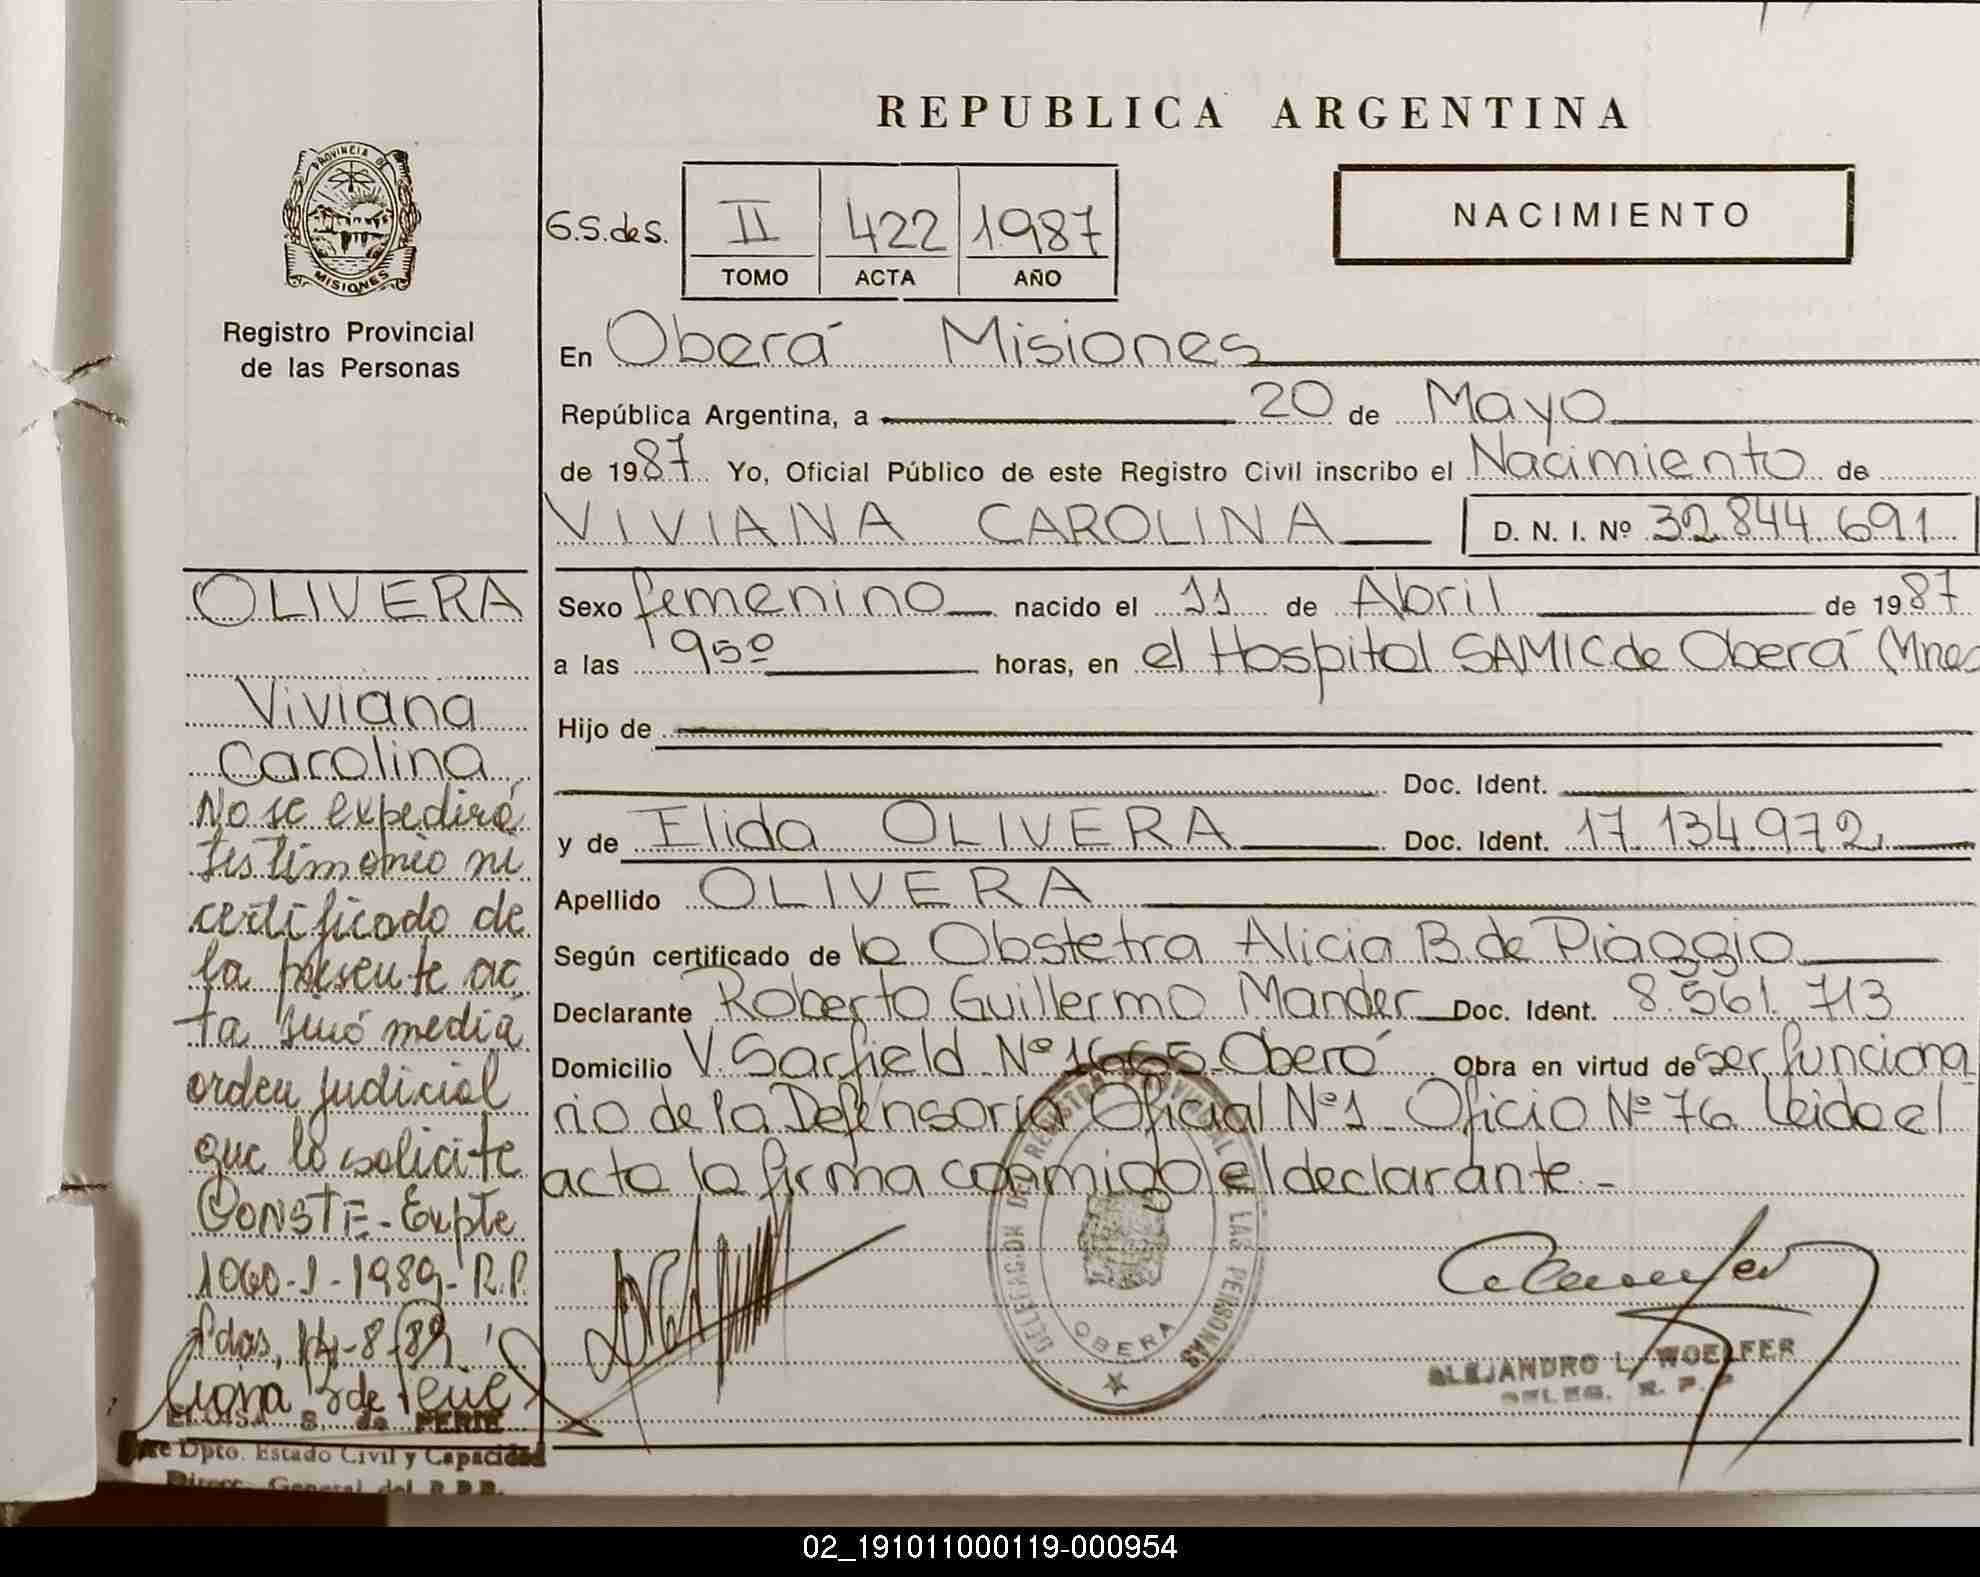 REPUBLICA ARGENTINA
PROVINCIA DE
MISIONES
Registro Provincial
de las Personas
G.S. de S.
II 422 1987
TOMO ACTA AÑO
NACIMIENTO
En Oberá Misiones
República Argentina, a 20 de Mayo
de 1987 Yo, Oficial Público de este Registro Civil inscribo el Nacimiento de
VIVIANA CAROLINA D. N. I. Nº 32.844.691
Sexo femenino nacido el 11 de Abril de 1987
a las 950 horas, en el Hospital SAMIC de Oberá (Mnes
Hijo de
Doc. Ident.
y de Elida OLIVERA Doc. Ident. 17.134.972
Apellido OLIVERA
Según certificado de la Obstetra Alicia B. de Piaggio
Declarante Roberto Guillermo Mander Doc. Ident. 8.561.713
Domicilio V. Sarfield Nº 1665 Oberá Obra en virtud de ser funciona
rio de la Defensoria Oficial Nº1 Oficio Nº 76 Leido el
acto la firma conmigo el declarante.-
OLIVERA
Viviana
Carolina
No se expedirá
testimonio ni
certificado de
la presente ac
ta sinó media
orden judicial
que lo solicite
CONSTE - Expte
1060-I-1989-R.P.
Pdas, 14-8-89
ELOISA S. de PERIE
Dpto. Estado Civil y Capacidad
General del R.P.P.
DELEGACION DEL REGISTRO PROVINCIAL DE LAS PERSONAS
OBERA
ALEJANDRO L. WOELFER
DELEG. R. P. P.
02_191011000119-000954